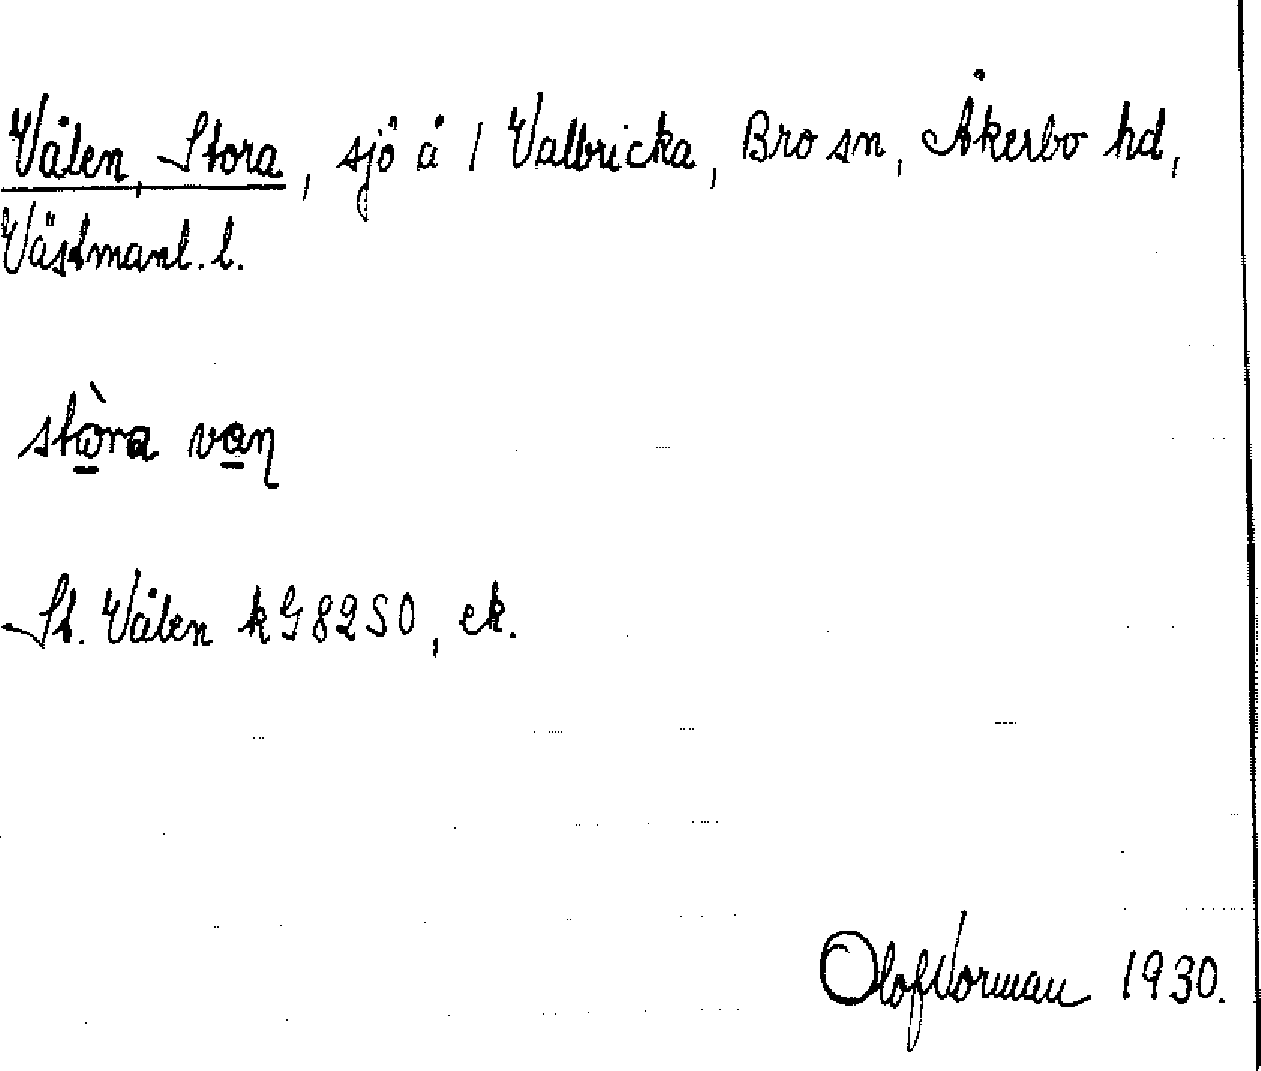 Vålen, Stora, sjö å 1 Valbricka, Bro sn, Åkerbo hd,
Västmanl. l.
stò̠ra va̠ɳ
St. Vålen kG8250, ek.
Olof Norman 1930.